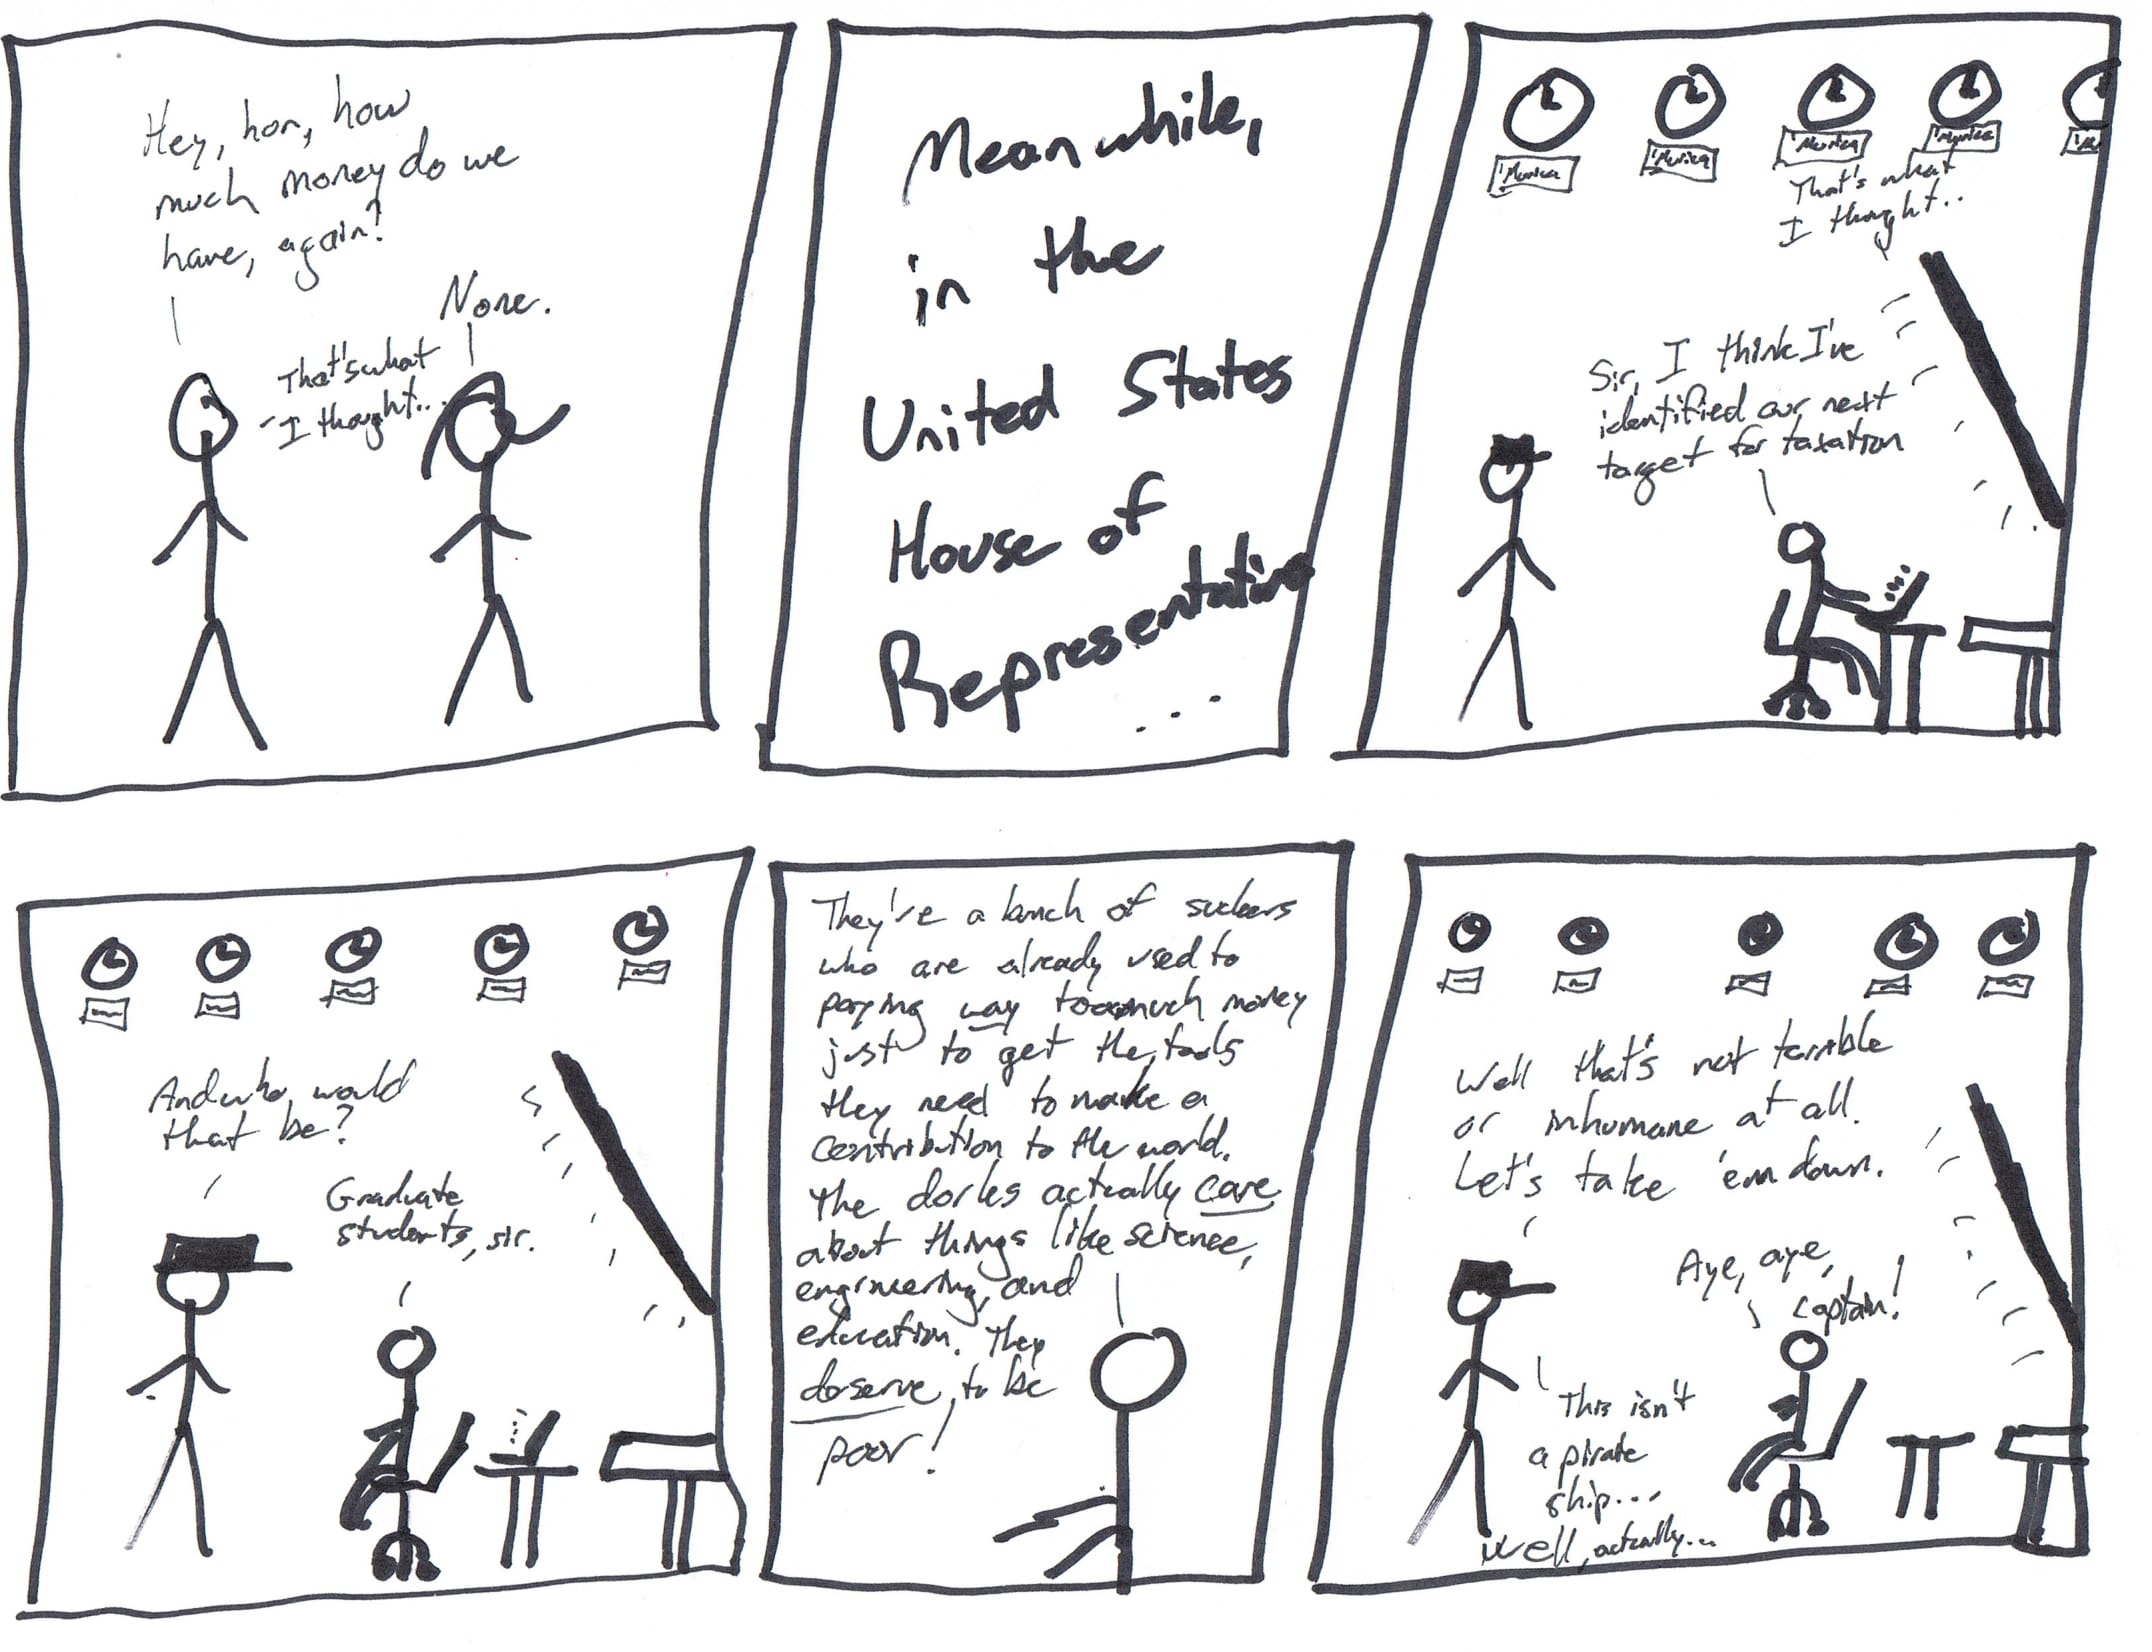 Hey, hon, how
much money do we
have, again?
None.
That's what
I thought...
Meanwhile,
in the
United States
House of
Representatives
...
'Murica
'Murica
'Murica
'Murica
'M
That's what
I thought..
Sir, I think I've
identified our next
target for taxation
And who would
that be?
Graduate
students, sir.
They're a bunch of suckers
who are already used to
paying way too much money
just to get the tools
they need to make a
contribution to the world.
The dorks actually care
about things like science,
engineering, and
education. They
deserve to be
poor!
Well that's not terrible
or inhumane at all.
Let's take 'em down.
Aye, aye,
captain!
This isn't
a pirate
ship...
Well, actually...